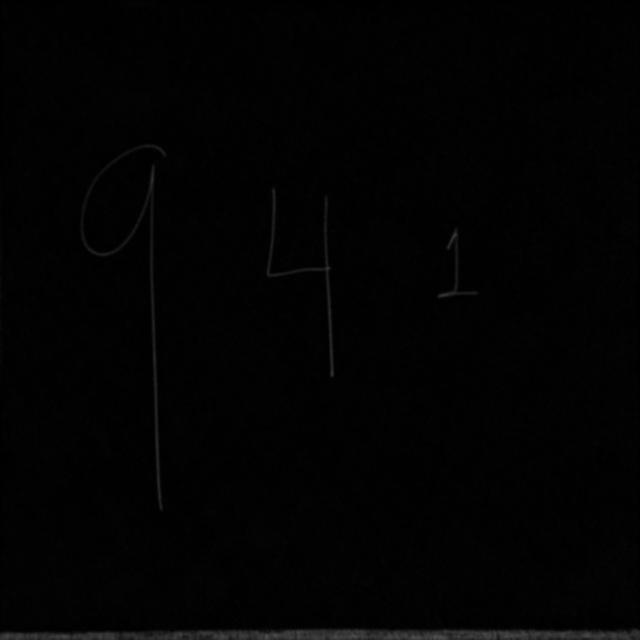 9 4 1